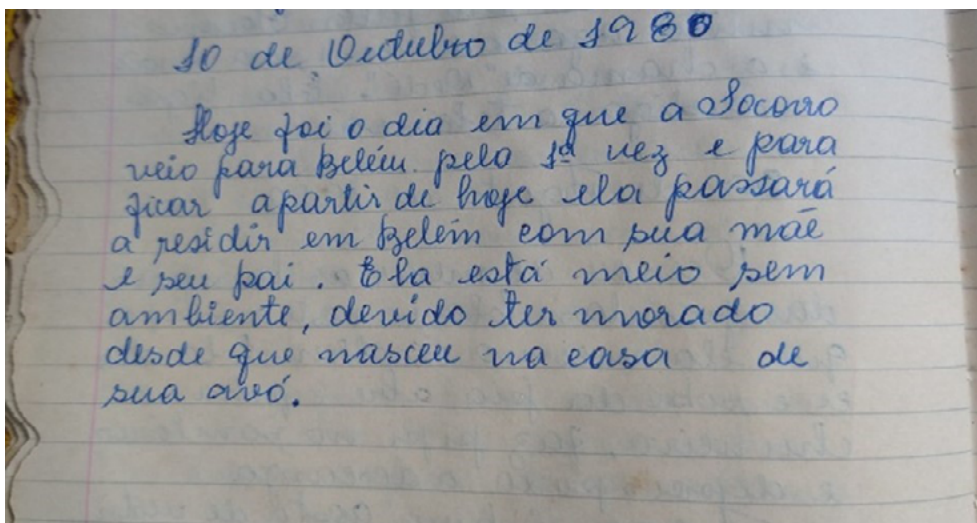 10 de Outubro de 1980
Hoje foi o dia em que a Socorro
veio para Belém pela 1ª vez e para
ficar apartir de hoje ela passará
a residir em Belém com sua mãe
e seu pai. Ela está meio sem
ambiente, devido ter morado
desde que nasceu na casa de
sua avó.